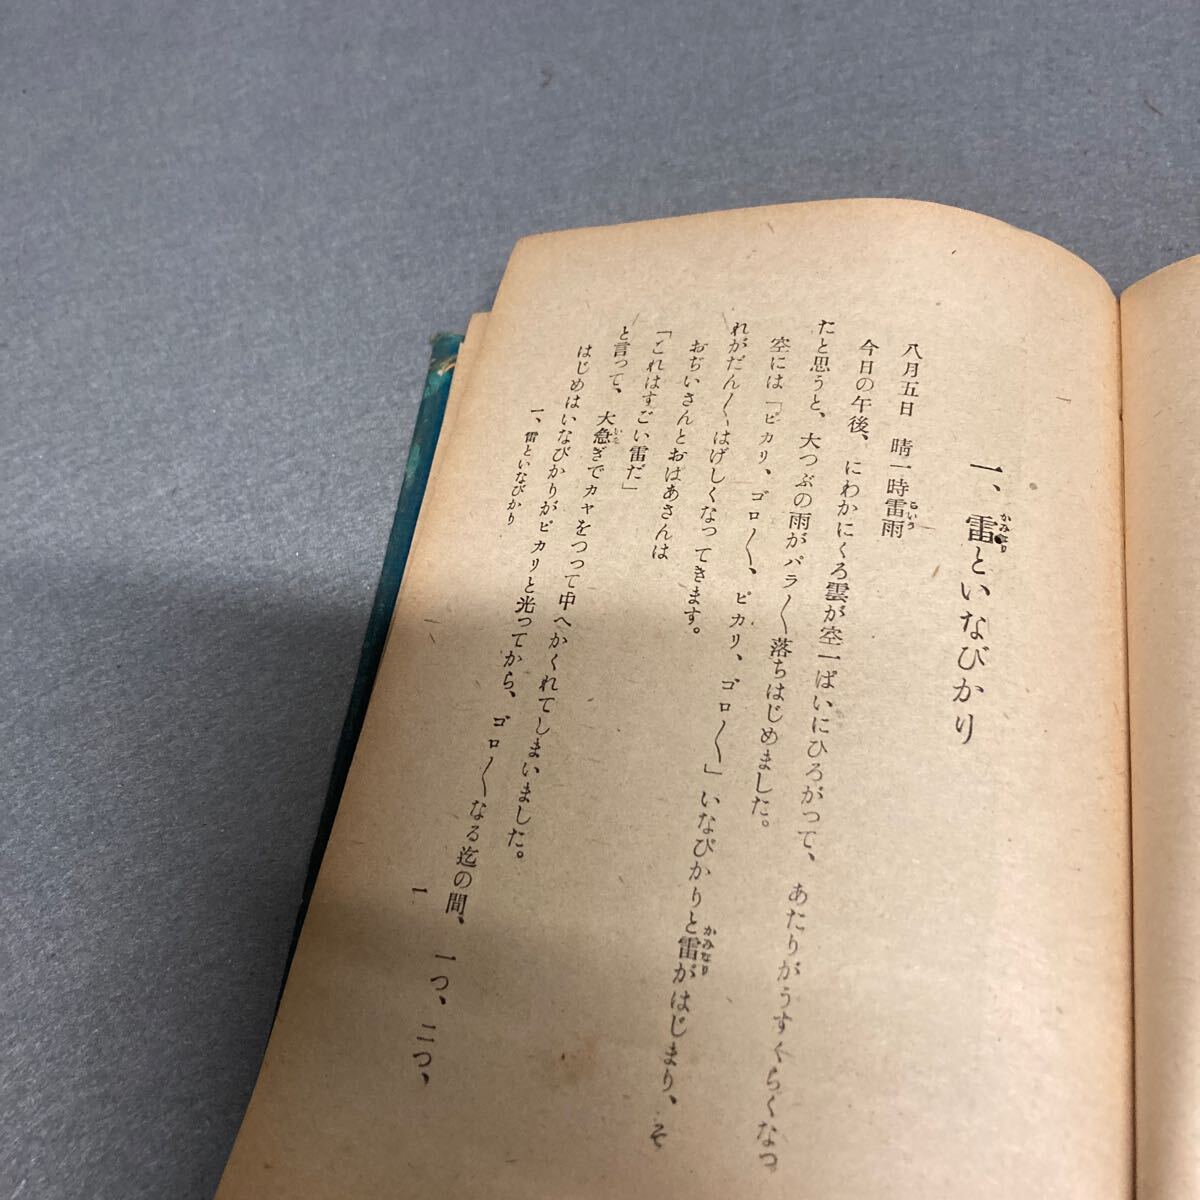 一、雷といなびかり
八月五日　晴一時雷雨
今日の午後、にわかにくろ雲が空一ぱいにひろがつて、あたりがうすくらくなつ
たと思うと、大つぶの雨がパラ〳〵落ちはじめました。
空には「ピカリ、ゴロ〳〵、ピカリ、ゴロ〳〵」いなびかりと雷がはじまり、そ
れがだん〳〵はげしくなつてきます。
おぢいさんとおばあさんは
「これはすごい雷だ」
と言って、大急ぎでカヤをつつて中へかくれてしまいました。
はじめはいなびかりがピカリと光つてから、ゴロ〳〵なる迄の間、一つ、二つ、
一、雷といなびかり
一